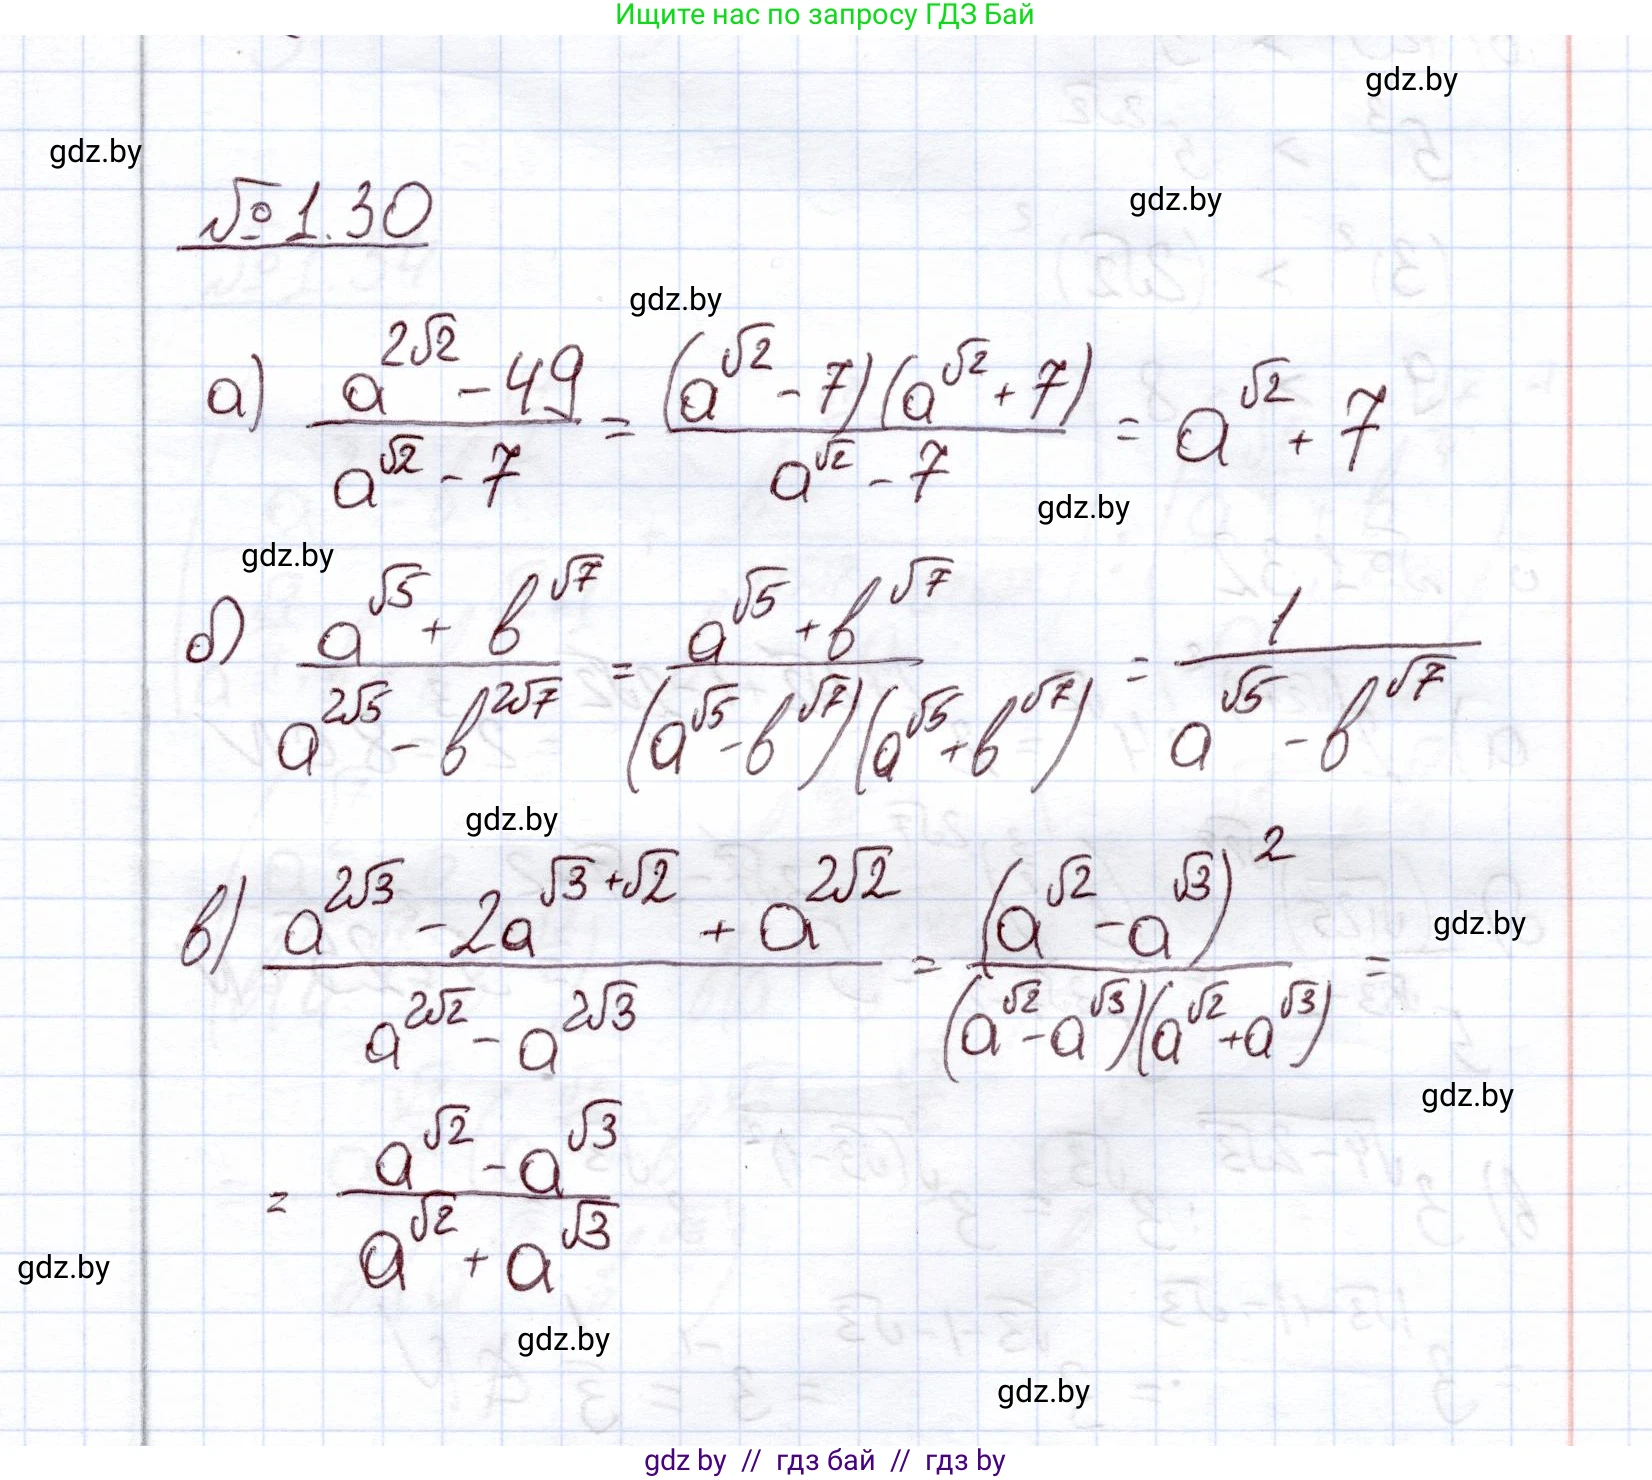 Ищите нас по запросу ГДЗ Бай
gdz.by
gdz.by
gdz.by
№ 1.30
gdz.by
а) \frac{a^{2√2} - 49}{a^{√2} - 7} = \frac{(a^{√2} - 7)(a^{√2} + 7)}{a^{√2} - 7} = a^{√2} + 7
gdz.by
gdz.by
б) \frac{a^{√5} + b^{√7}}{a^{2√5} - b^{2√7}} = \frac{a^{√5} + b^{√7}}{(a^{√5} - b^{√7})(a^{√5} + b^{√7})} = \frac{1}{a^{√5} - b^{√7}}
gdz.by
в) \frac{a^{2√3} - 2a^{√3+√2} + a^{2√2}}{a^{2√2} - a^{2√3}} = \frac{(a^{√2} - a^{√3})^2}{(a^{√2} - a^{√3})(a^{√2} + a^{√3})} =
gdz.by
gdz.by
= \frac{a^{√2} - a^{√3}}{a^{√2} + a^{√3}}
gdz.by
gdz.by
gdz.by
gdz by // гдз бай // гдз by